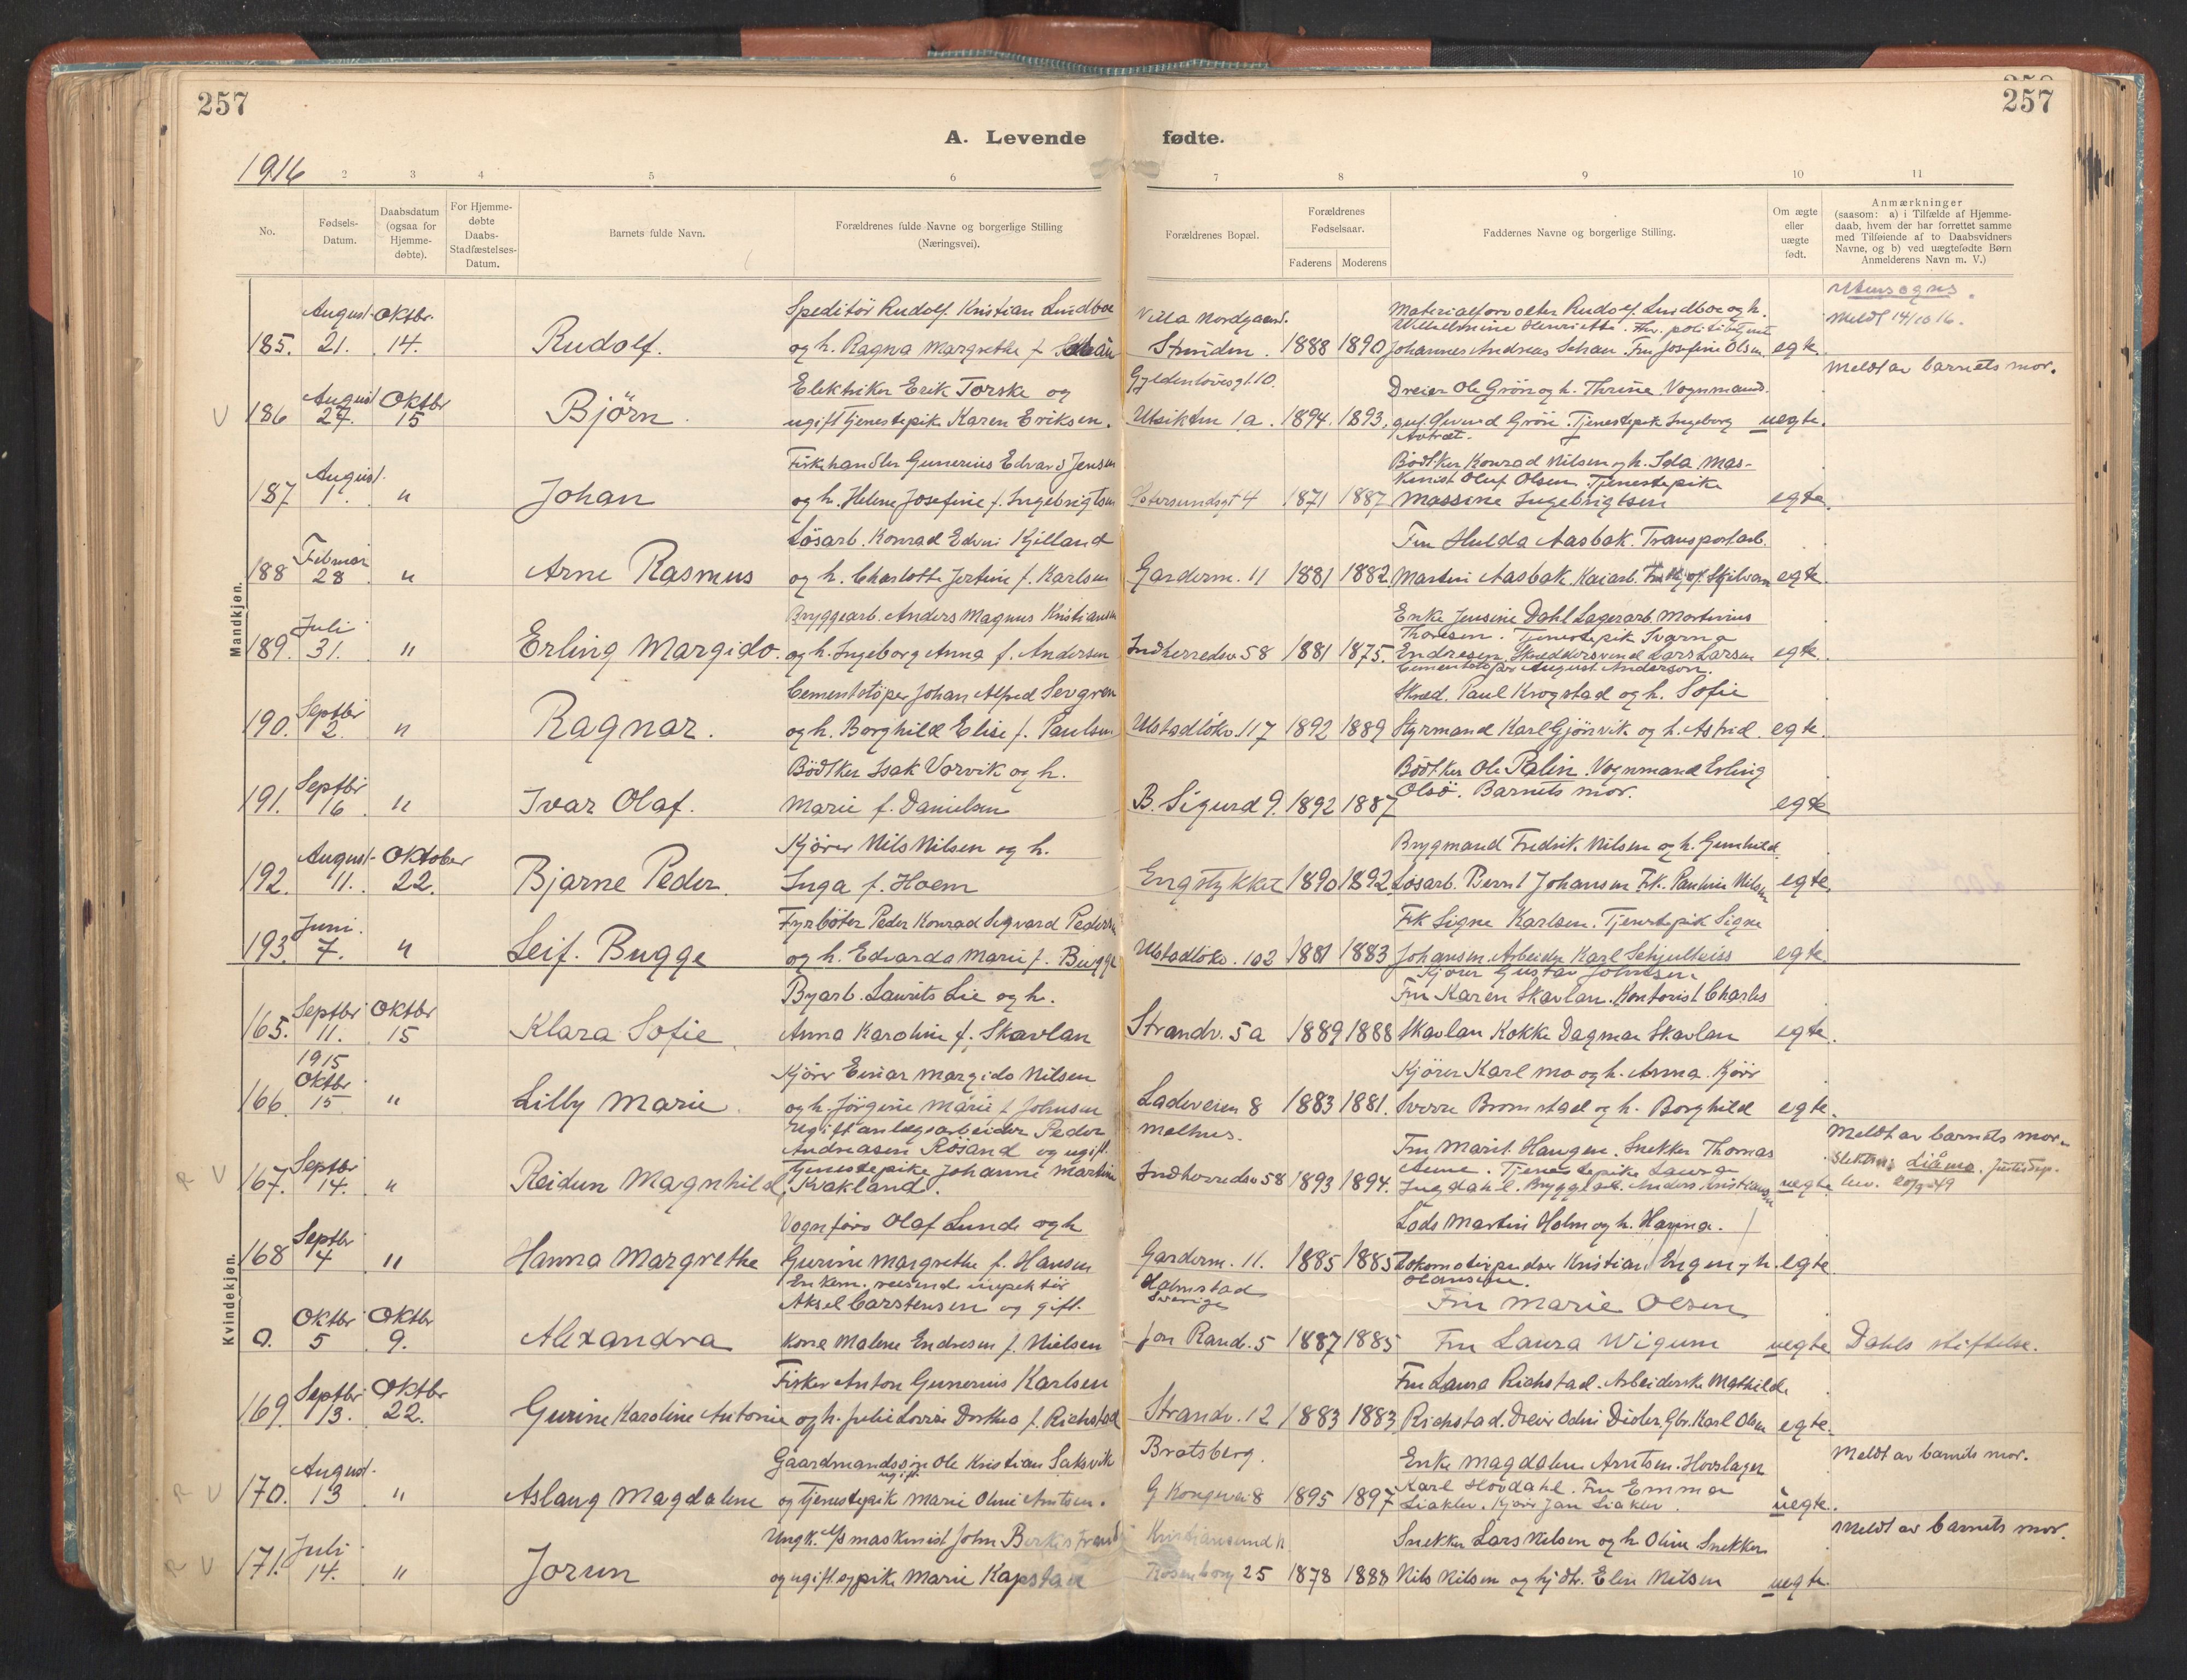 257
257
A. Levende fødte.
1916
2 3 4 5 6 7 8 9 10 11
No.
Fødsels-
Datum.
Daabsdatum
(ogsaa for
Hjemme-
døbte).
For Hjemme-
døbte
Daabs-
Stadfæstelses-
Datum.
Barnets fulde Navn.
Forældrenes fulde Navne og borgerlige Stilling
(Næringsvei).
Forældrenes Bopæl.
Forældrenes
Fødselsaar.
Faderens Moderens
Faddernes Navne og borgerlige Stilling.
Om ægte
eller
uægte
født.
Anmærkninger
(saasom: a) i Tilfælde af Hjemme-
daab, hvem der har forrettet samme
med Tilføiende af to Daabsvidners
Navne, og b) ved uægtefødte Børn
Anmelderens Navn m. V.)
Mandkjøn.
August Oktbr. Speditör Rudolf Kristian Lundboe Villa Nordgaard. Materialforvalter Rudolf Lundboe og h. Utensogns.
Wilhelmine Henriette. Fhv. politibetjent Meldt 14/10 16.
185. 21. 14. Rudolf. og h. Ragna Margrethe f. Strinden. 1888 1890 Johannes Andreas Schau. Fru Josefine Olsen egte
August Oktbr Elektriker Erik Torske og Gyldenlövesgt. 10. Dreier Ole Grön og h. Thrine. Vognmand. Meldt av barnets mor.
V 186 27. 15 Björn. ugift tjenestepik Karen Eriksen. Utsikten 1a. 1894. 1893. Grön. Tjenestepik Ingeborg uegte.
August. Fiskehandler Gunerius Edvard Jensen Bödtker Konrad Nilsen og h. Ida Mas-
kinist Oluf Olsen. Tjenestepike
187 1. " Johan og h. Helene Josefine f. Ingebrigtsen Östersundsgt 4 1871 1887 Massine Ingebrigtsen egte.
Februar Lösarb. Konrad Edvin Kjelland Fru Hulda Aasbak. Transportarb.
188 28 " Arne Rasmus og h. Charlotte Jertine f. Karlsen Garderm. 11 1881 1882 Martin Aasbak. Kaiarb. egte.
Juli Bryggearb. Anders Magnus Kristiansen Enke Jensine Dahl Lagerarb. Martinius
Thoresen. Tjenestepik Svarna
189. 31. " Erling Margido. og h. Ingeborg Anna f. Andersen Indherredsv 58 1881 1875. Endresen. Skreddersvend Lars Larsen egte.
Cementstöper August Anderson.
Septbr Cementstöper Johan Alfred Sevgren Skred. Paul Krogstad og h. Sofie
190. 2. " Ragnar. og h. Borghild Elise f. Paulsen Ulstadlökv. 117 1892 1889 Styrmand Karl Gjörvik og h. Astrid. egte.
Septbr Bödtker Isak Vorvik og h. Bödtker Ole Palin. Vognmand Erling
191. 16 " Ivar Olaf. Marie f. Danielsen B. Sigurd 9. 1892 1887 Olsö. Barnets mor. egte
August Oktober Kjører Nils Nilsen og h. Brygmand Fredrik Nilsen og h. Gunhild.
192. 11. 22. Bjarne Peder. Inga f. Hoem Engstykket 1890 1892 Lösarb. Bernt Johansen Frk. Pauline Nilsen egte.
Juni. Fyrböter Peder Konrad Sigvard Pedersen Frk Signe Karlsen. Tjenestepik Signe
193. 7. " Leif. Bugge og h. Edvarda Marie f. Bugge Ulstadlökv. 102 1881 1883 Johansen. Arbeider Karl Schjulteiss egte.
Kjörer Gustav Johnsen
Kvindekjøn.
Septbr Oktbr Byarb. Laurits Lie og h. Fru Karen Skavlan. Kontorist Charles
165. 11. 15 Klara Sofie. Anna Karoline f. Skavlan Strandv. 5a 1889 1888 Skavlan Kokke Dagmar Skavlan egte.
1915
Oktbr Kjører Einar Margido Nilsen Kjörer Karl Mo og h. Anna. Kjörer
166. 15 " Lilly Marie. og h. Jörgine Marie f. Johnsen Ladeveien 8 1883 1881. Sverre Bromstad og h. Borghild egte.
Ugift anlægsarbeider Peder Melhus. Meldt av barnets mor.
Septbr Andreasen Rösand og ugift Fru Marit Haugen. Snekker Thomas Slektsn. Liåmo. Justisdep.
Tjenestepike Johanne Martine Aune. Tjenestepike Laura
R V 167. 14. " Reidun Magnhild. Kvakland. Indherredsv 58 1893 1894. Ingdahl. Bryggearb. Anders Kristiansen uegte. bev. 20/9-49
Septbr Vognförer Olaf Lunde og h Lods Martin Holm og h. Hanna.
168 4 " Hanna Margrethe Gurine Margrethe f. Hansen Garderm. 11. 1885 1885 Lokomotivpudser Kristian Engen og h. egte.
Enkem. reisende inspektör Halmstad
Oktbr Oktbr Aksel Carstensen og gift. Sverige Fru Marie Olsen
0. 5 9. Alexandra kone Malene Endresen f. Nielsen Jon Raudv. 5 1887 1885 Fru Laura Wigum uegte Dahls stiftelse.
Septbr Oktbr Fisker Anton Gunerius Karlsen Fru Laura Richstad. Arbeiderske Mathilde
169. 13. 22. Gurine Karoline Antonie og h. Julie Lovise Dorthea f. Richstad Strandv. 12 1883 1883 Richstad. Dreier Odin Gbr. Karl Olsen egte.
August. Gaardmandssön Ole Kristian Saksvik Bratsberg. Enke Magdalene Arntsen. Hovslager Meldt av barnets mor.
ugift Karl Hovdahl. Fru Emma
R V 170. 13 " Aslaug Magdalene og Tjenestepik Marie Oline Arntsen. G Kongevei 8 1895 1897 Liaklev. Kjörer Jan Liaklev. uegte.
Juli Ungk. maskinist John Kristiansund N. Snekker Lars Nilsen og h Oline. Snekker Meldt av barnets mor.
R V 171. 14. " Jorun og ugift pike Marie Kapstad Rosenborg 25 1878 1888 Nils Nilsen og hj dtr. Elin Nilsen uegte.